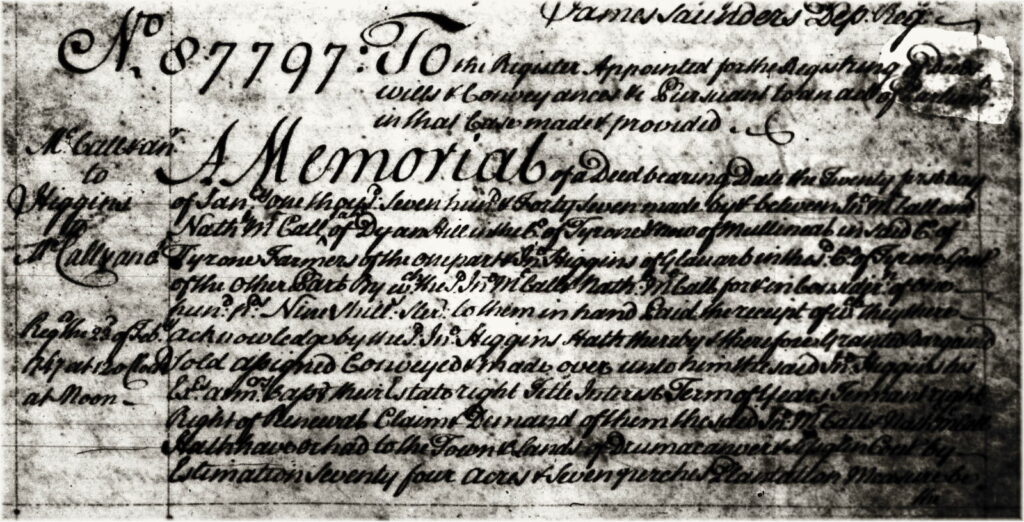 James Saunders Dep. Reg.
No. 87797: To the Register Appointed for the Registring
wills & Conveyances & Pursuant to an act of
in that Case made & provided
A Memorial of a Deed bearing Date the Twenty first day
of Jan.ry one thou.d Seven hun.d & Forty Seven made by & between Jn.o McCall and
Nath.l McCall of Dyan Hill in the C.o of Tyrone now of Mullin in said C.o of
Tyrone Farmers of the one part & Jn.o Higgins of in the s.d C.o of Tyrone
of the Other Part By w.ch the s.d Jn.o McCall & Nath.l McCall for & in Consid.n of one
hun.d p.ds Nine Shill.s Ster. to them in hand Paid the receipt of w.ch they there
acknowledge by the s.d Jn.o Higgins Hath thereby & therefore Granted Bargained
Sold assigned Conveyed & made over unto him the said Jn.o Higgins his
Ex.rs adm.rs & ass.s their Estate right Title Interest Term of Years Tennant right
Right of Renewal Claim & Demand of them the said Jn.o McCall & Nathaniel
Hath have or had to the Town & Lands of by
Estimation Seventy four Acres & Seven perches Plantation Measure be
the
to
Higgins
Reg.d the 23.d of Feb.
at 12 o Clock
at Noon